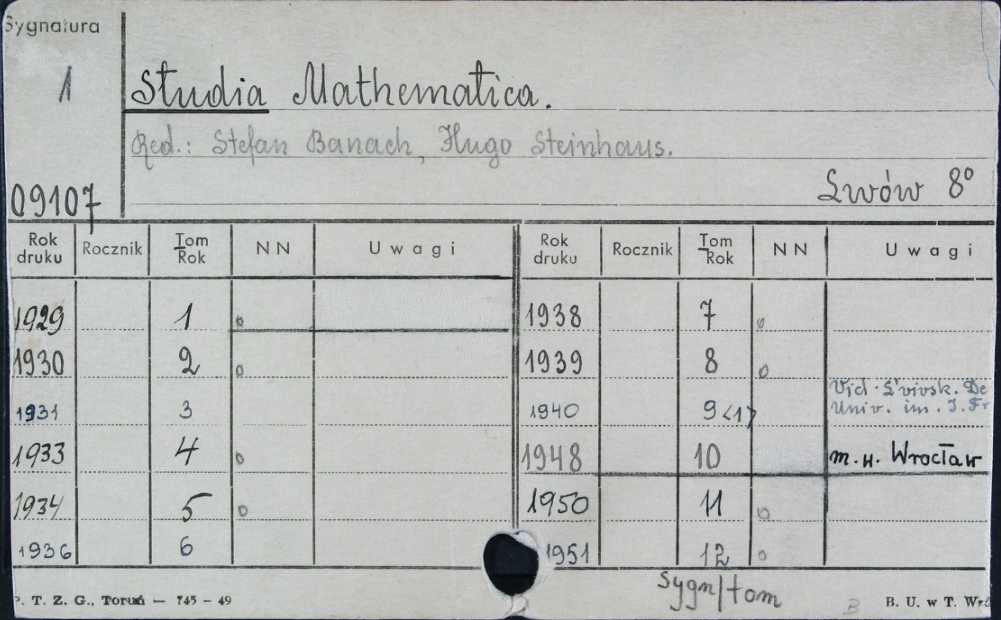 Sygnatura
1
Studia Mathematica.
Red.: Stefan Banach, Hugo Steinhaus.
09107
Lwów 8°
Rok druku Rocznik Tom Rok NN Uwagi Rok druku Rocznik Tom Rok NN Uwagi
1929 1 o 1938 7 o
1930 2 o 1939 8 o
Vid. L'vivsk. De
1931 3 1940 9<1> Univ. im. I. Fr
1933 4 o 1948 10 m.w. Wrocław
1934 5 o 1950 11 o
1936 6 1951 12 o
Sygn/tom
P. T. Z. G., Toruń — 745 – 49
B
B. U. w T. Wr